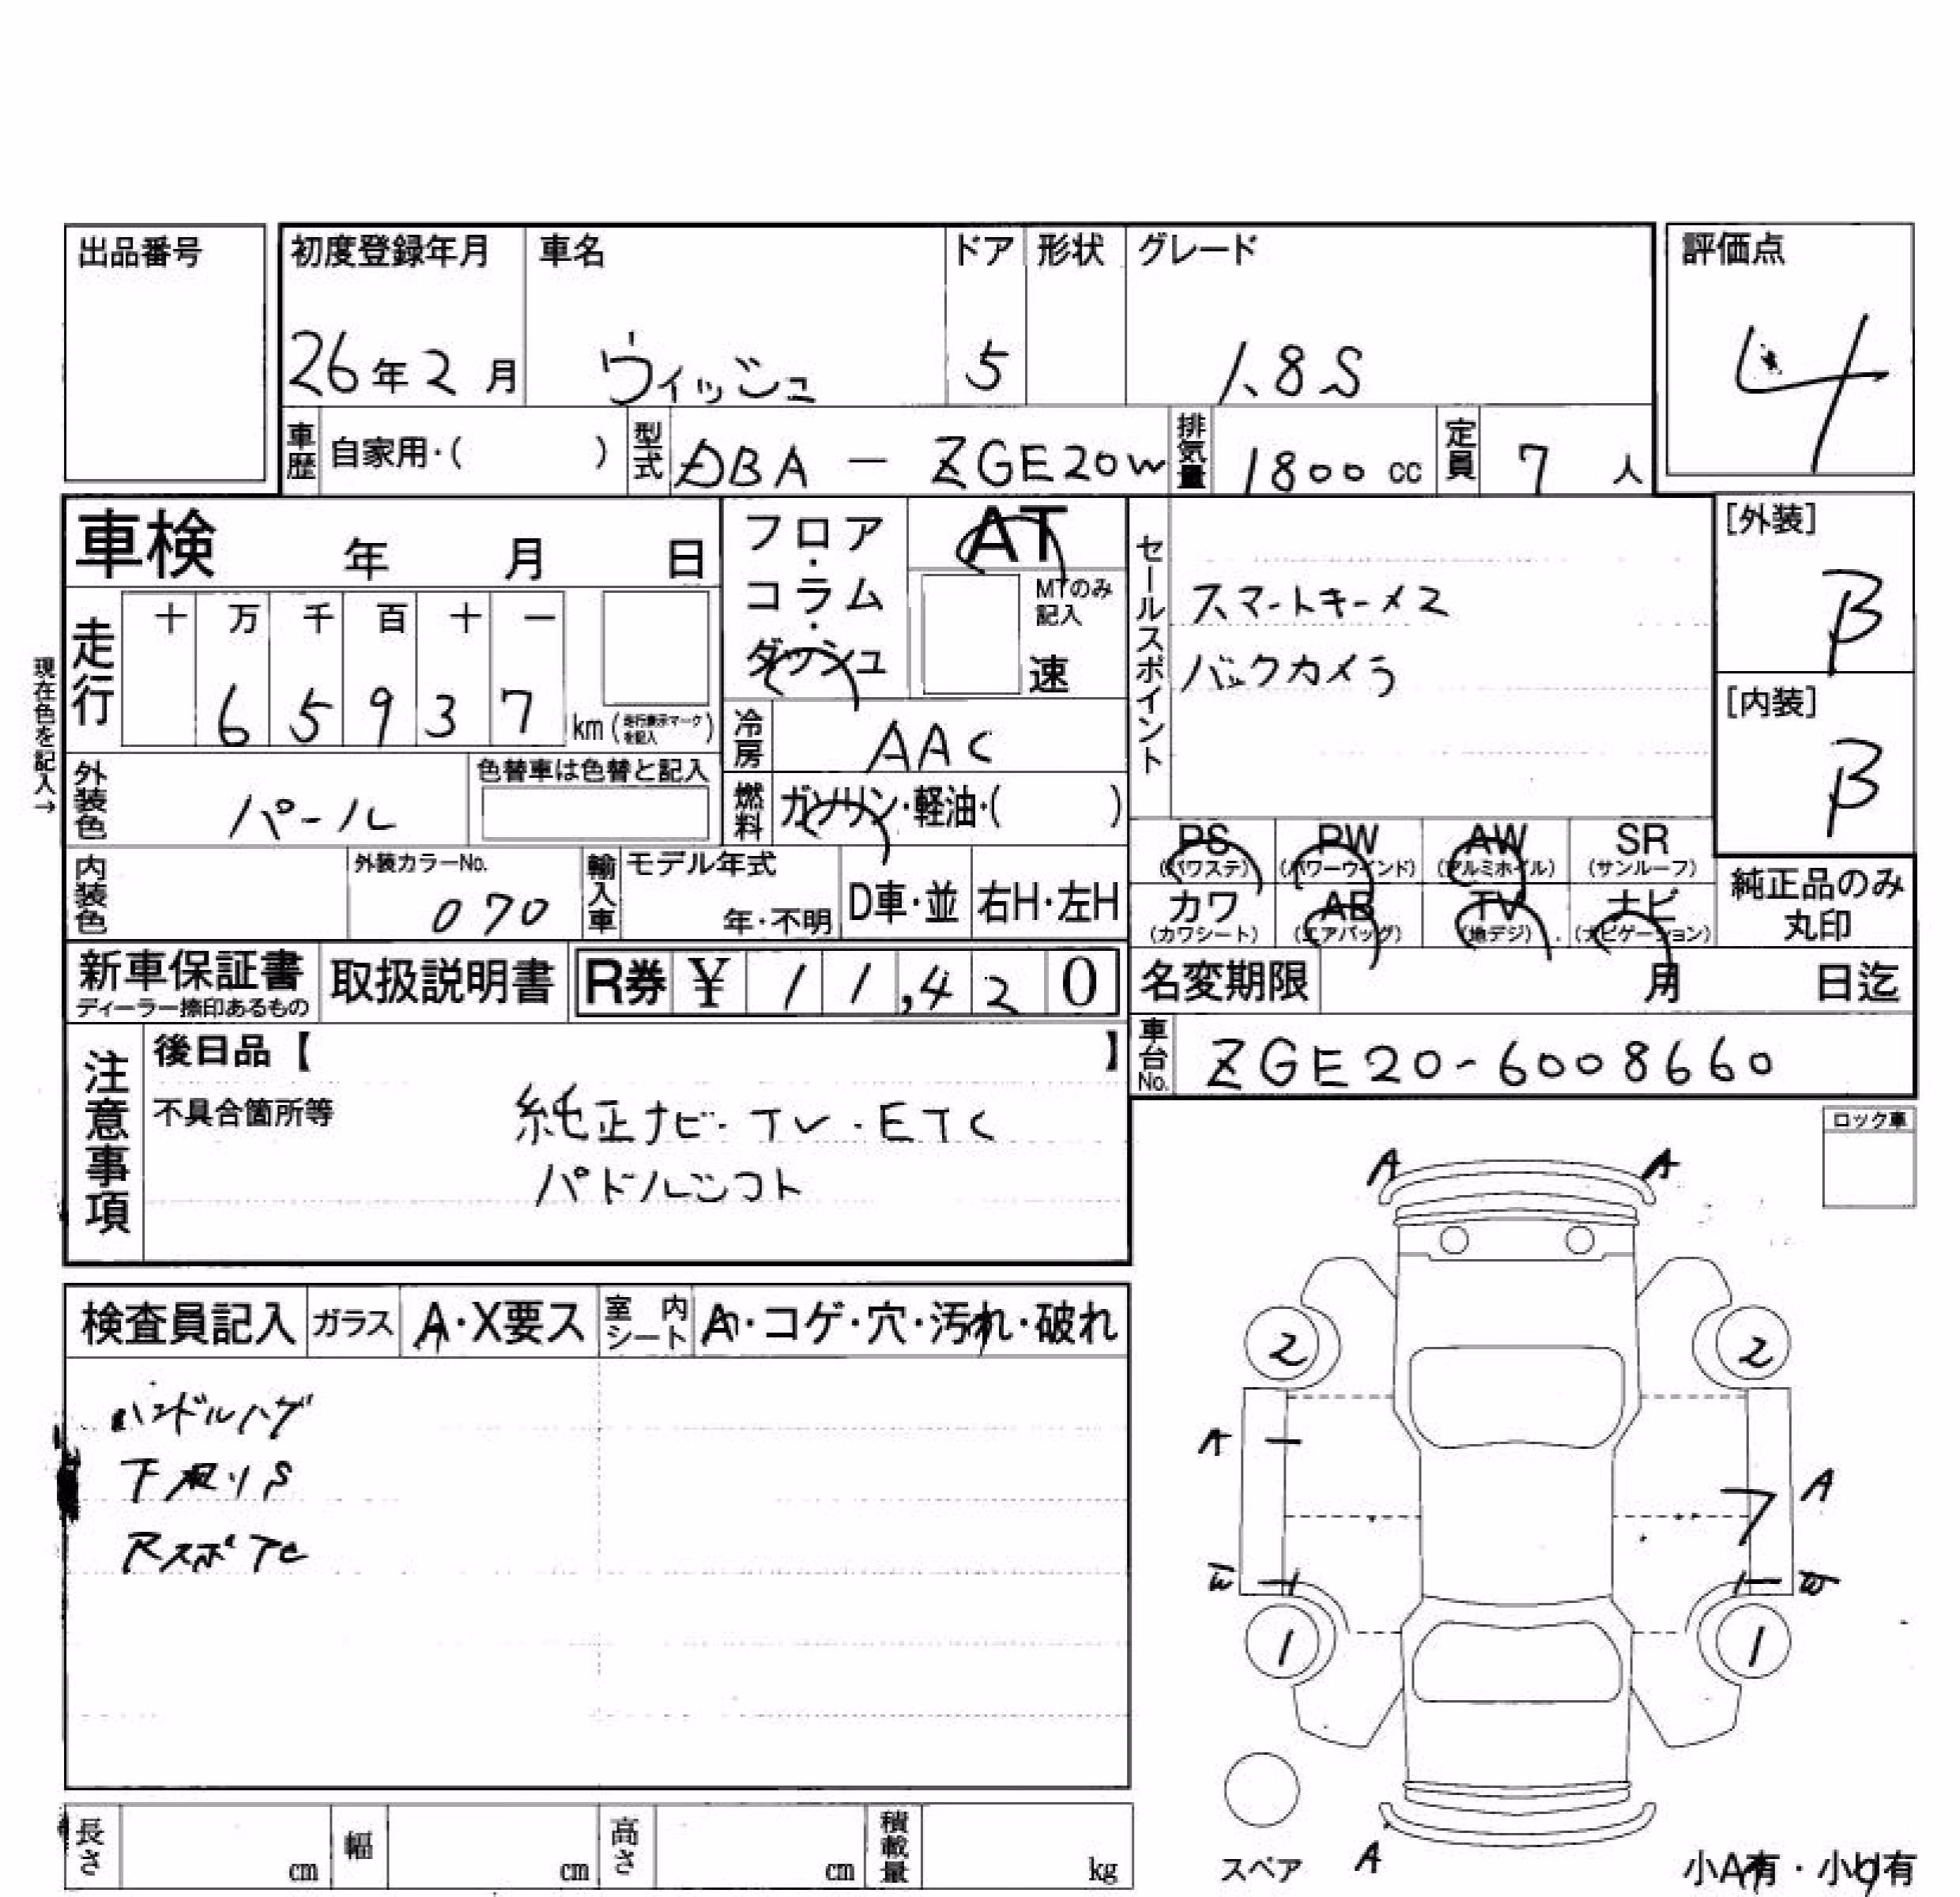 出品番号
初度登録年月 車名 ドア 形状 グレード 評価点
26年2月 ウィッシュ 5 1.8S 4
車歴 自家用・( ) 型式 DBA - ZGE20W 排気量 1800cc 定員 7人
車検 年 月 日
フロア・コラム・ダッシュ AT
MTのみ記入
速
セールスポイント
スマートキーメ2
バックカメラ
[外装]
B
[内装]
B
現在色を記入→
走行 十 万 千 百 十 一
6 5 9 3 7 km (走行表示マークを記入)
冷房 AAC
外装色 パール 色替車は色替と記入
燃料 ガソリン・軽油・( )
PS (パワステ) PW (パワーウインド) AW (アルミホイル) SR (サンルーフ)
カワ (カワシート) AB (エアバッグ) TV (地デジ) ナビ (ナビゲーション)
純正品のみ丸印
内装色 外装カラーNo. 070 輸入車 モデル年式 年・不明 D車・並 右H・左H
新車保証書 ディーラー捺印あるもの 取扱説明書 R券 ¥ 11,420
名変期限 月 日迄
車台No. ZGE20-6008660
注意事項
後日品【 】
不具合箇所等 純正ナビ・TV・ETC
パドルシフト
ロック車
検査員記入 ガラス A・X要ス 室内シート A・コゲ・穴・汚れ・破れ
ハンドルハゲ
下廻りS
A A
2 2
A A
7
W W
1 1
スペア A 小A有・小U有
長さ cm 幅 cm 高さ cm 積載量 kg